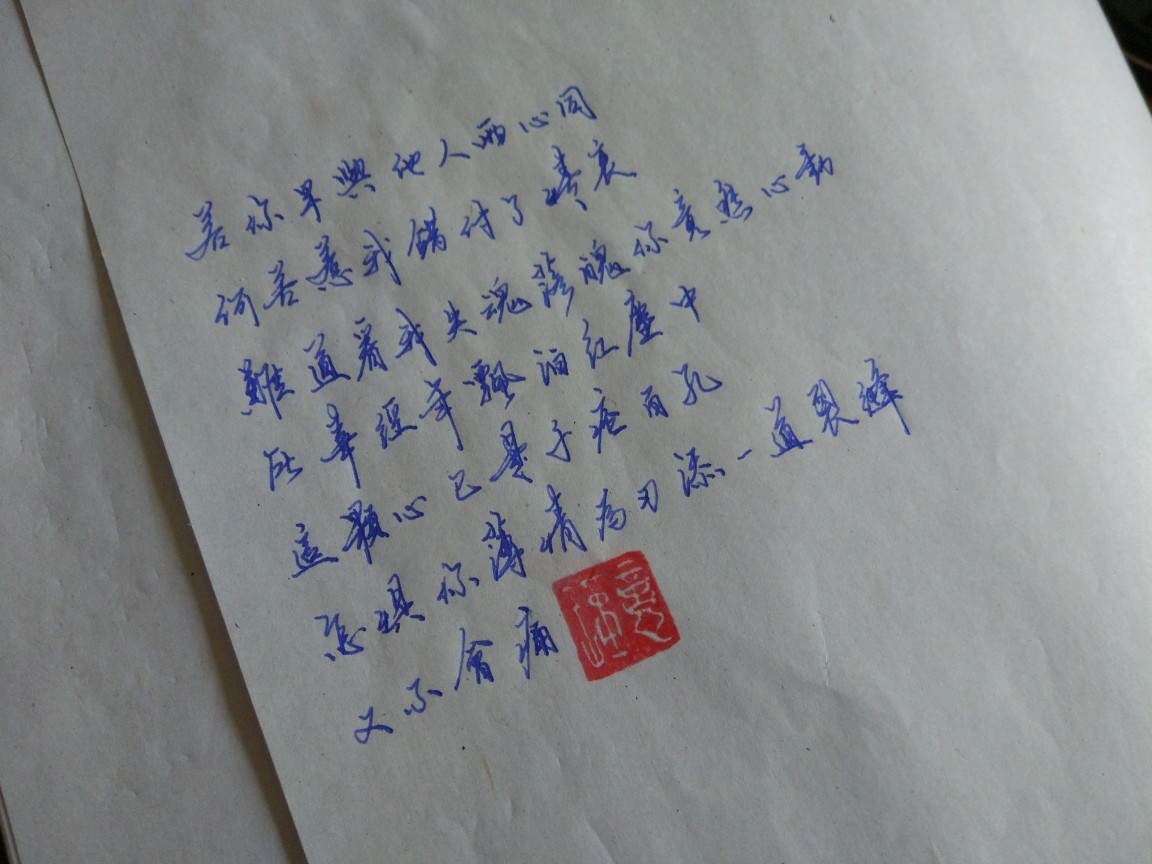 若你早與他人兩心同
何苦惹我錯付了情衷
難道看我失魂落魄你竟然心動
所幸經年飄泊紅塵中
這顆心已是千瘡百孔
怎懼你薄情為刃添一道裂縫
又不會痛